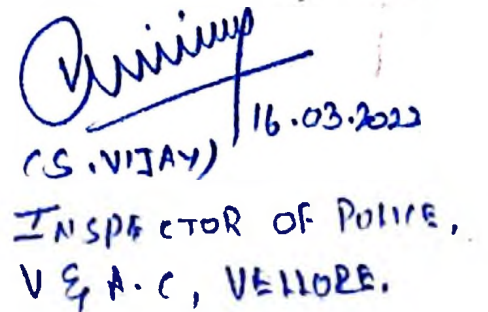 16.03.2022
(S.VIJAY)
INSPECTOR OF POLICE,
V & A.C, VELLORE.